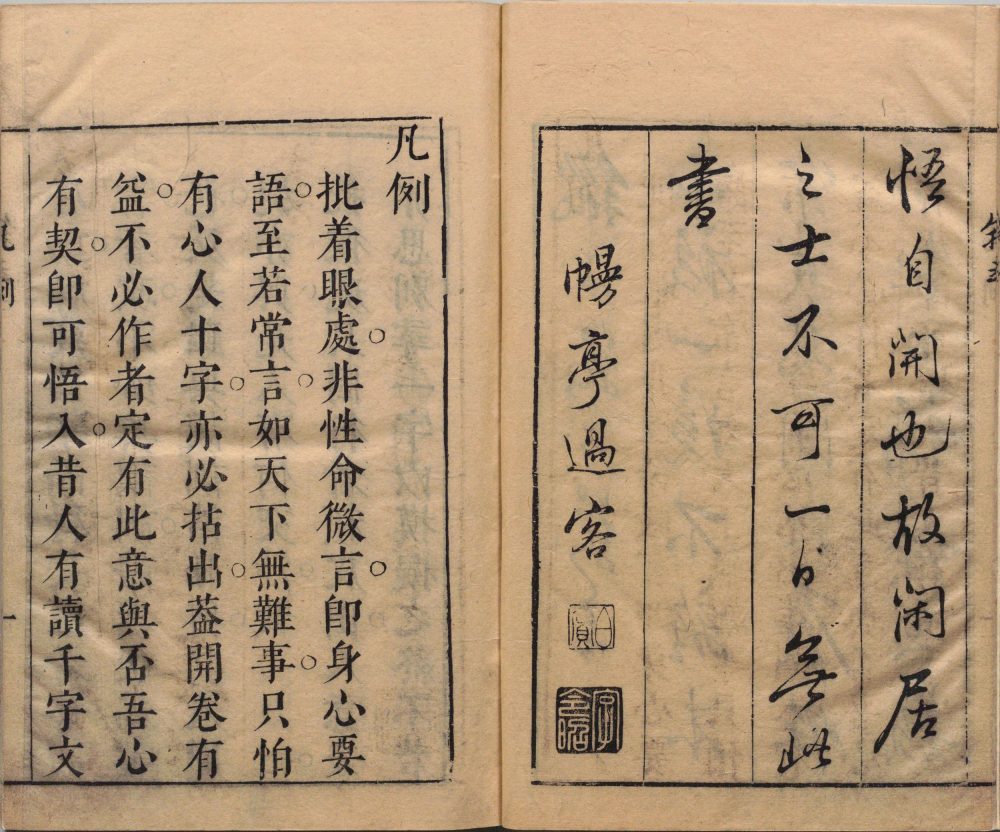 悟自開也故閑居
之士不可一日無此
書
幔亭過客
凡例
批着眼處非性命微言卽身心要
語至若常言如天下無難事只怕
有心人十字亦必拈出葢開卷有
益不必作者定有此意與否吾心
有契卽可悟入昔人有讀千字文
凡例
一